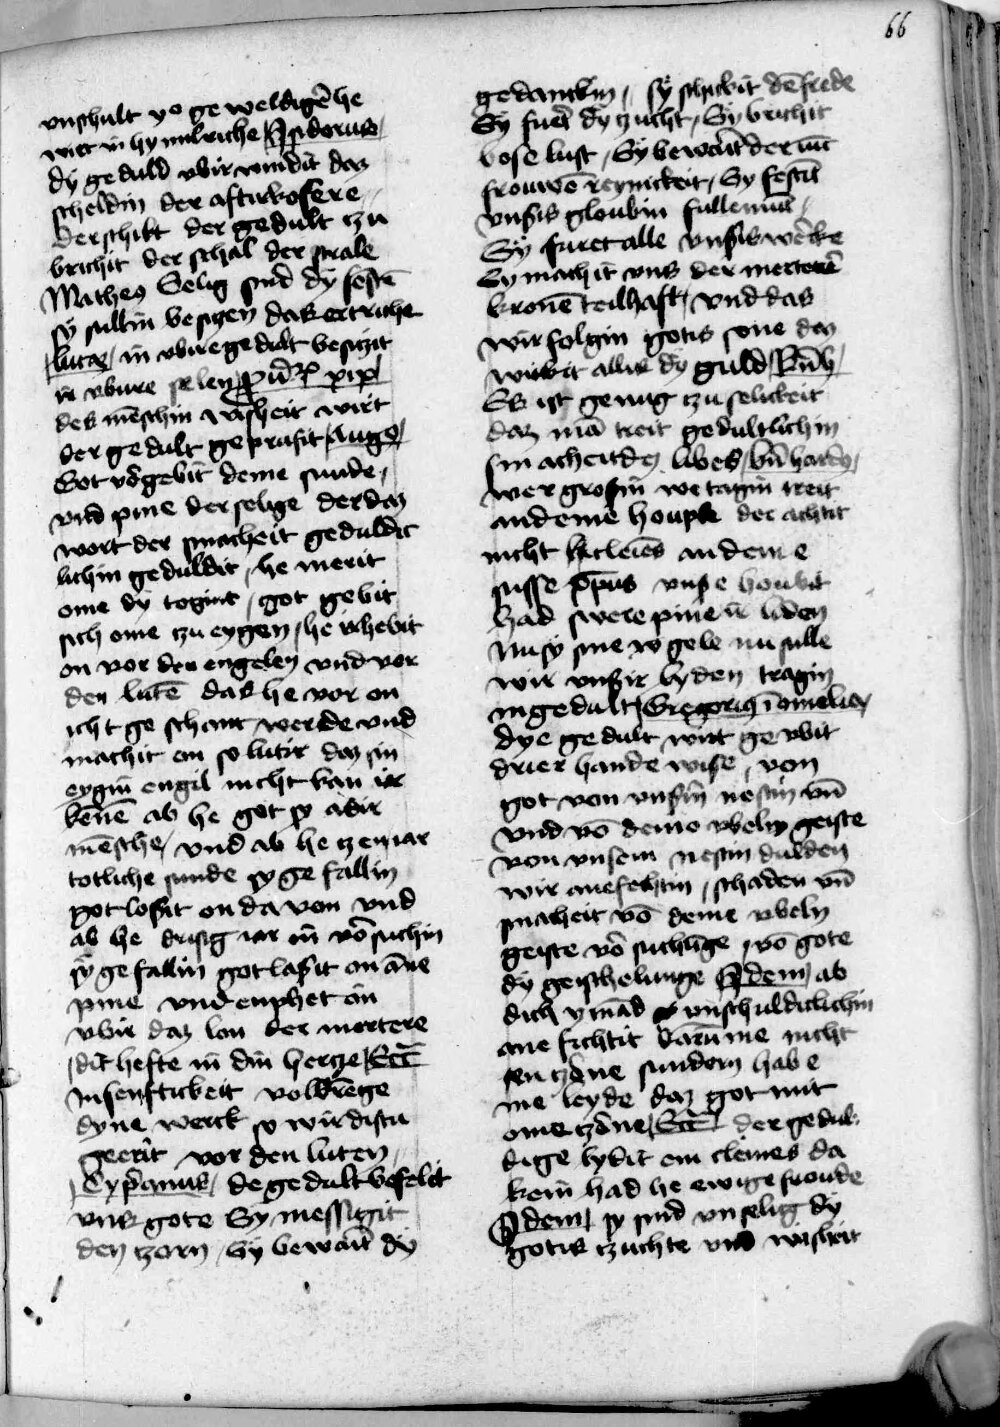 66
vnschult yo geweldigē he
wirt in hymmilriche Ysiderus
dÿ geduld vbir windit daz
scheldin der aftirkosere
der schilt der gedult tzu
brichit der schal der strale
Matheo Selig sind dy seftē
sy sullin besitzen das ertriche
lucas in vwire gedult besitzit
ir vwire selen
des mēschin wisheit wirt
der gedult geprufit Augo
Got v'gebit deme sunde
vnd pine der selige der daz
wort der smacheit geduldic
lichin geduldit he merit
ome dy togint got gebit
sich ome tzu eygen he irhebit
on vor den engelen vnd vor
den lutē das he vor on
icht geschant werde vnd
machit on so lutir daz sin
eygin engil nicht kan ir
kenē ab he got sy adir
mēsche vnd ab he tzen iar
totliche sunde sy gefallin
got losit on da von vnd
ab he drisig iar in v'suchin
sÿ gefallin got lasit on āne
pine vnd enphet on
vbir daz lon der mertere
dit hefte in din hertze Ecc
In senftickeit volbrēge
dyne werck so wirdistu
geerit vor den luten
Cyp'anus de gedult befelet
vns gote Sy messigit
den tzorn Sy bewart dy
gedanckin sÿ schickit dē frede
Sy furet dy tzucht Sy brichit
bose lust Sy bewart der iūc
frouwē reynickeit Sy festit
vnsis gloubin fullemūt
Sÿ furet alle vnsis wercke
Sy machit vns der merterer
kronē teilhaft vnd das
wir folgin gotis sone daz
wirkit allis dy guld
Es ist genug tzu selickeit
daz mā treit gedultlichin
sin acheit des libes b'nhard9
wer grosin wetagin treit
an deme houpte der achtit
nicht kleiēs an deme
fusse xp̄us vnse houbit
had swere pine v̄ liden
Nu sy sine wgele nu sulle
wir vnsir lyden tragin
in gedult Gregori9 ī omelie
dye gedult wirt gevbit
drier hande wise von
got von vnsim nestin vn̄
vnd vō deme vbeln geiste
von vnsem nestin dulden
wir anefechtin schaden vn̄
smacheit vō deme vbeln
geiste v'suchūge vō gote
dy geischelunge Idem ab
dich ymād vnschuldiclichin
ane fichtit darūme nicht
en tzorne sundern habe
me leyde daz got mit
ome tzorne Ecc der gedul
dige lydit ein cleines da
kein had he ewige froude
Idem sy sind vnselig dy
gotis tzuchte vnd wisheit